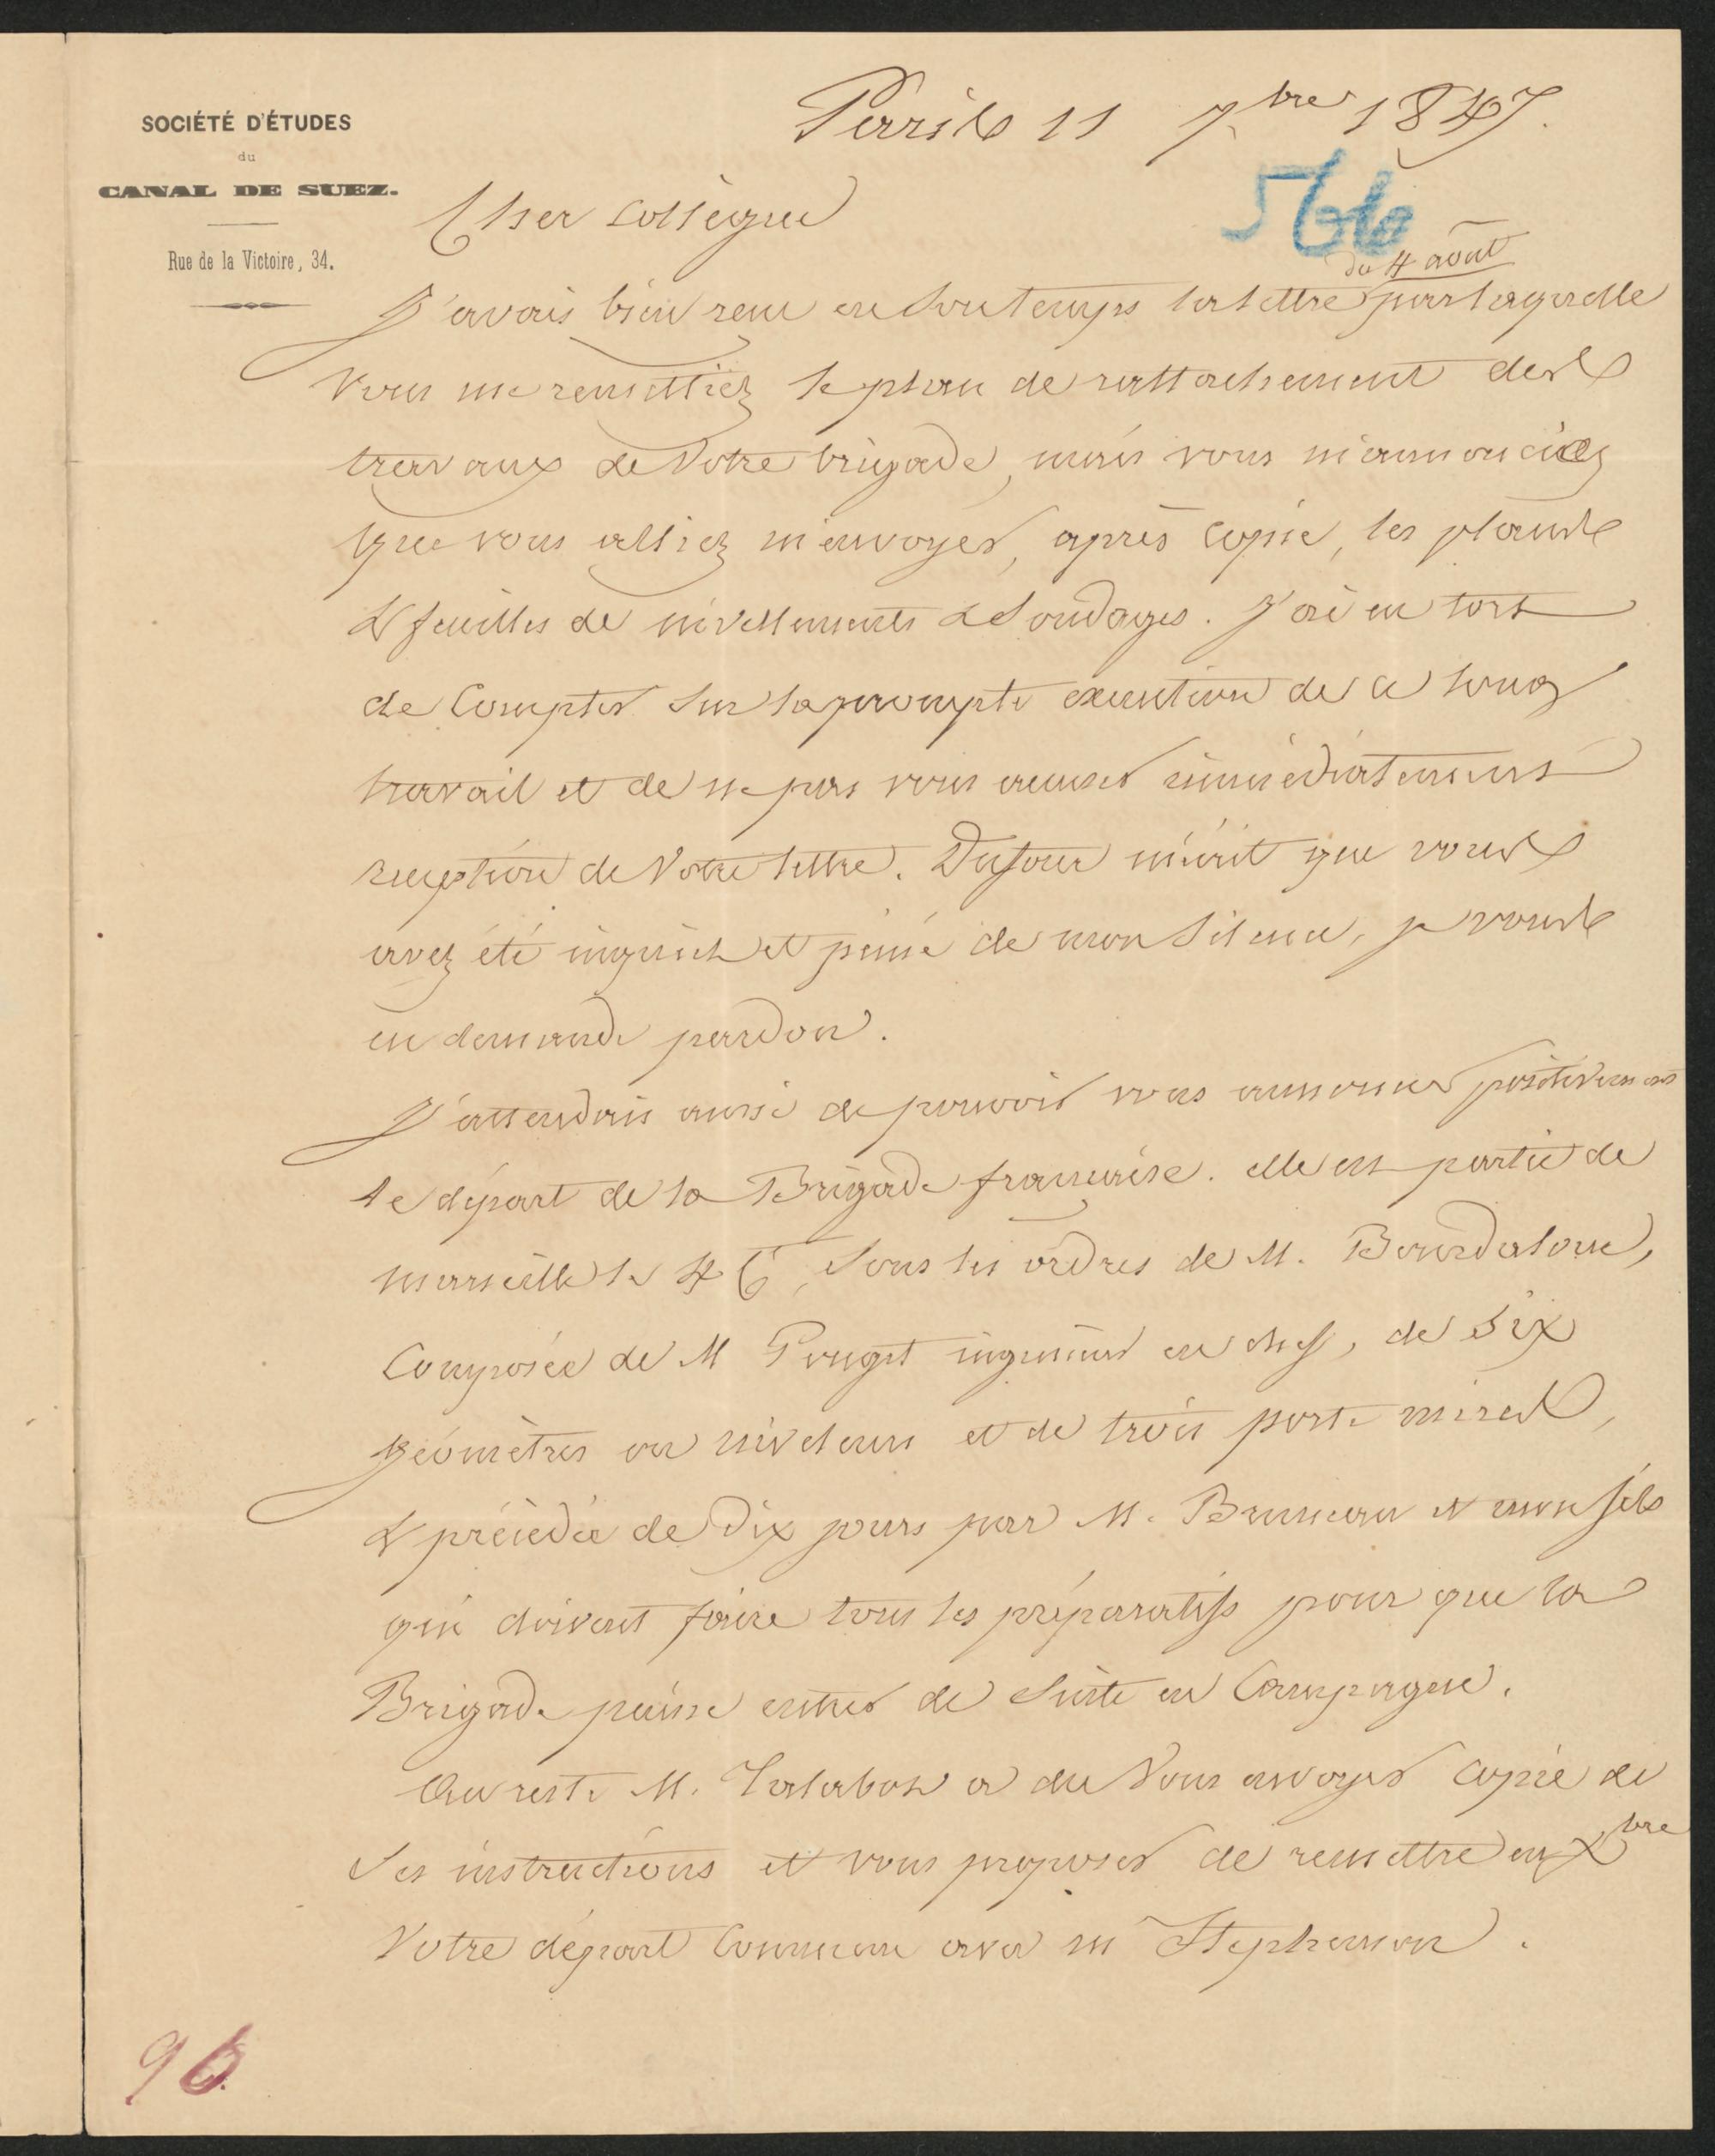 SOCIÉTÉ D'ÉTUDES
du
CANAL DE SUEZ.
Rue de la Victoire, 34.
Paris 11 7bre 1847.
Cher collègue
du 4 août
J'avais bien reçu en son temps la lettre par laquelle
vous me remettiez le plan de rattachement des
travaux de votre brigade, mais vous m'annonciez
que vous alliez m'envoyer, après copie, les plans
& feuilles de nivellements & sondages. J'ai eu tort
de compter sur la prompte exécution de ce long
travail et de ne pas vous accuser immédiatement
reception de votre lettre. Dufour m'écrit que vous
avez été inquiet et peiné de mon silence, je vous
en demande pardon.
J'attendais aussi de pouvoir vous annoncer positivement
le départ de la Brigade française. elle est partie de
marseille le 4 Ct, sous les ordres de M. Bourdaloue,
composée de M Pouget ingénieur en chef, de six
géomètres ou niveleurs et de trois porte mires,
& précédée de dix jours par M. Bruneau et mon fils
qui doivent faire tous les préparatifs pour que la
Brigade puisse entrer de suite en Campagne.
Au reste M. Talabot a du vous envoyer copie de
ses instructions et vous proposer de remettre en Xbre
votre départ commun avec m Stephenson.
96